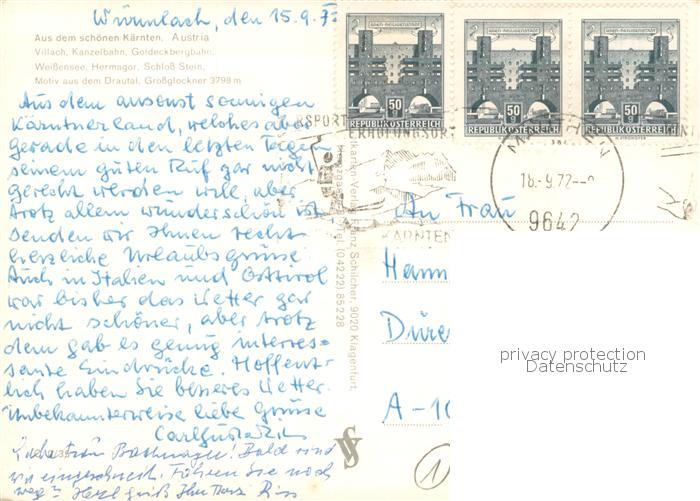 Würmlach, den 15.9.
Aus dem schönen Kärnten, Austria
Villach, Kanzelbahn, Goldeckbergbahn,
Weißensee, Hermagor, Schloß Stein,
Motiv aus dem Drautal, Großglockner 3798 m
Aus dem ansonst sonnigen
Kärntnerland, welches aber
gerade in den letzten Tagen
seinem guten Ruf gar nicht
gerecht werden will, aber
trotz allem wunderschön ist
senden wir Ihnen recht
herzliche Urlaubsgrüsse
Auch in Italien und Osttirol
war bisher das Wetter gar
nicht schöner, aber trotz
dem gab es genug interes=
sante Eindrücke. Hoffent=
lich haben Sie besseres Wetter.
Unbekannterweise liebe Grüsse
Bald sind
wir eingeschneit. Fahren Sie noch
weg?
WIEN-HEILIGENSTADT
50 g
REPUBLIK ÖSTERREICH
WIEN-HEILIGENSTADT
50 g
REPUBLIK ÖSTERREICH
WIEN-HEILIGENSTADT
50 g
REPUBLIK ÖSTERREICH
ERHOLUNGSORT
KÄRNTEN
18.-9.72
9642
Franz Schilcher, 9020 Klagenfurt,
(04222) 85228
An Frau
Hann
Düre
A-10
1
privacy protection
Datenschutz